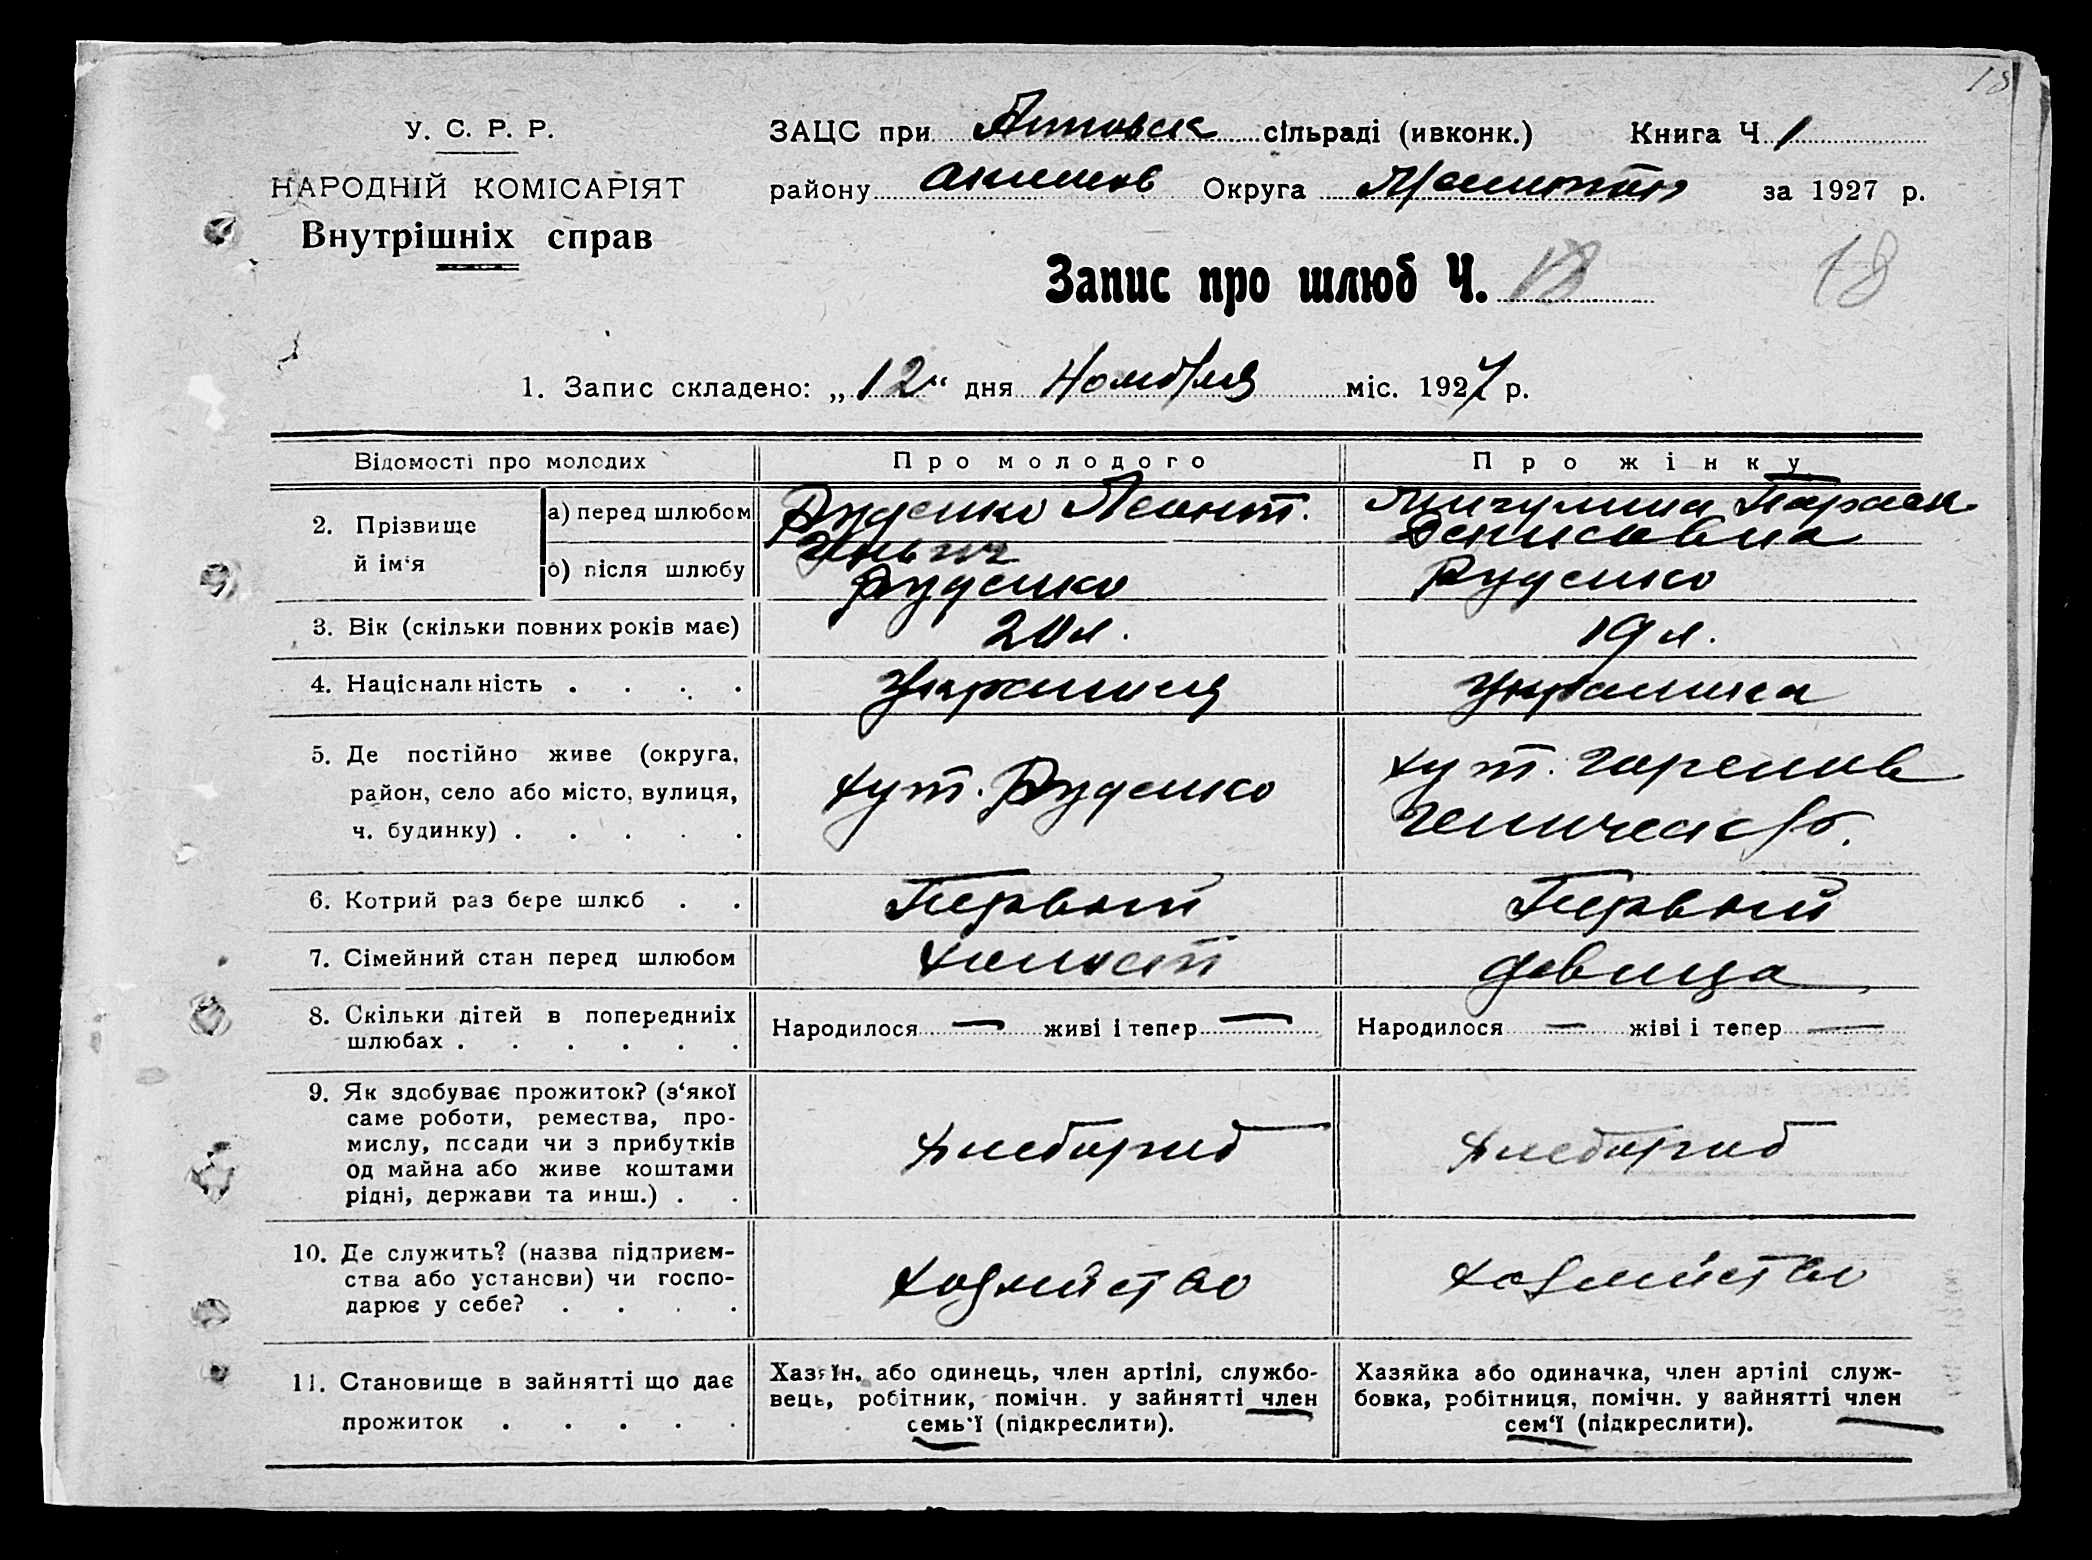 18
У. С. Р. Р.
НАРОДНІЙ КОМІСАРІЯТ
Внутрішніх справ
ЗАЦС при сільраді (ивконк.) Книга Ч 1
району Акимов Округа за 1927 р.
Запис про шлюб Ч. 18
18
1. Запис складено: „12“ дня Ноября міс. 1927 р.
Відомості про молодих
Про молодого
Про жінку
2. Прізвище й ім‘я
а) перед шлюбом
Руденко Леонт.
Параск
Денисовна
б) після шлюбу
Руденко
Руденко
3. Вік (скільки повних років має)
20 л.
19 л.
4. Національність . . . .
Украинец
Украинка
5. Де постійно живе (округа,
район, село або місто, вулиця,
ч. будинку) . . . . .
хут. Руденко
хут.
Геническ р.
6. Котрий раз бере шлюб . .
Первый
Первый
7. Сімейний стан перед шлюбом
холост
девица
8. Скільки дітей в попередниіх
шлюбах . . . . . .
Народилося — живі і тепер —
Народилося — жіві і тепер —
9. Як здобуває прожиток? (з‘якої
саме роботи, ремества, про-
мислу, посади чи з прибутків
од майна або живе коштами
рідні, держави та инш.) . .
хлебороб
хлебороб
10. Де служить? (назва підприєм-
ства або установи) чи госпо-
дарює у себе? . . . .
хозяйство
хозяйство
11. Становище в зайнятті що дає
прожиток . . . . .
Хазяїн, або одинець, член артілі, службо-
вець, робітник, помічн. у зайнятті член
семь‘ї (підкреслити).
Хазяйка або одиначка, член артілі служ-
бовка, робітниця, помічн. у зайнятті член
сем‘ї (підкреслити).